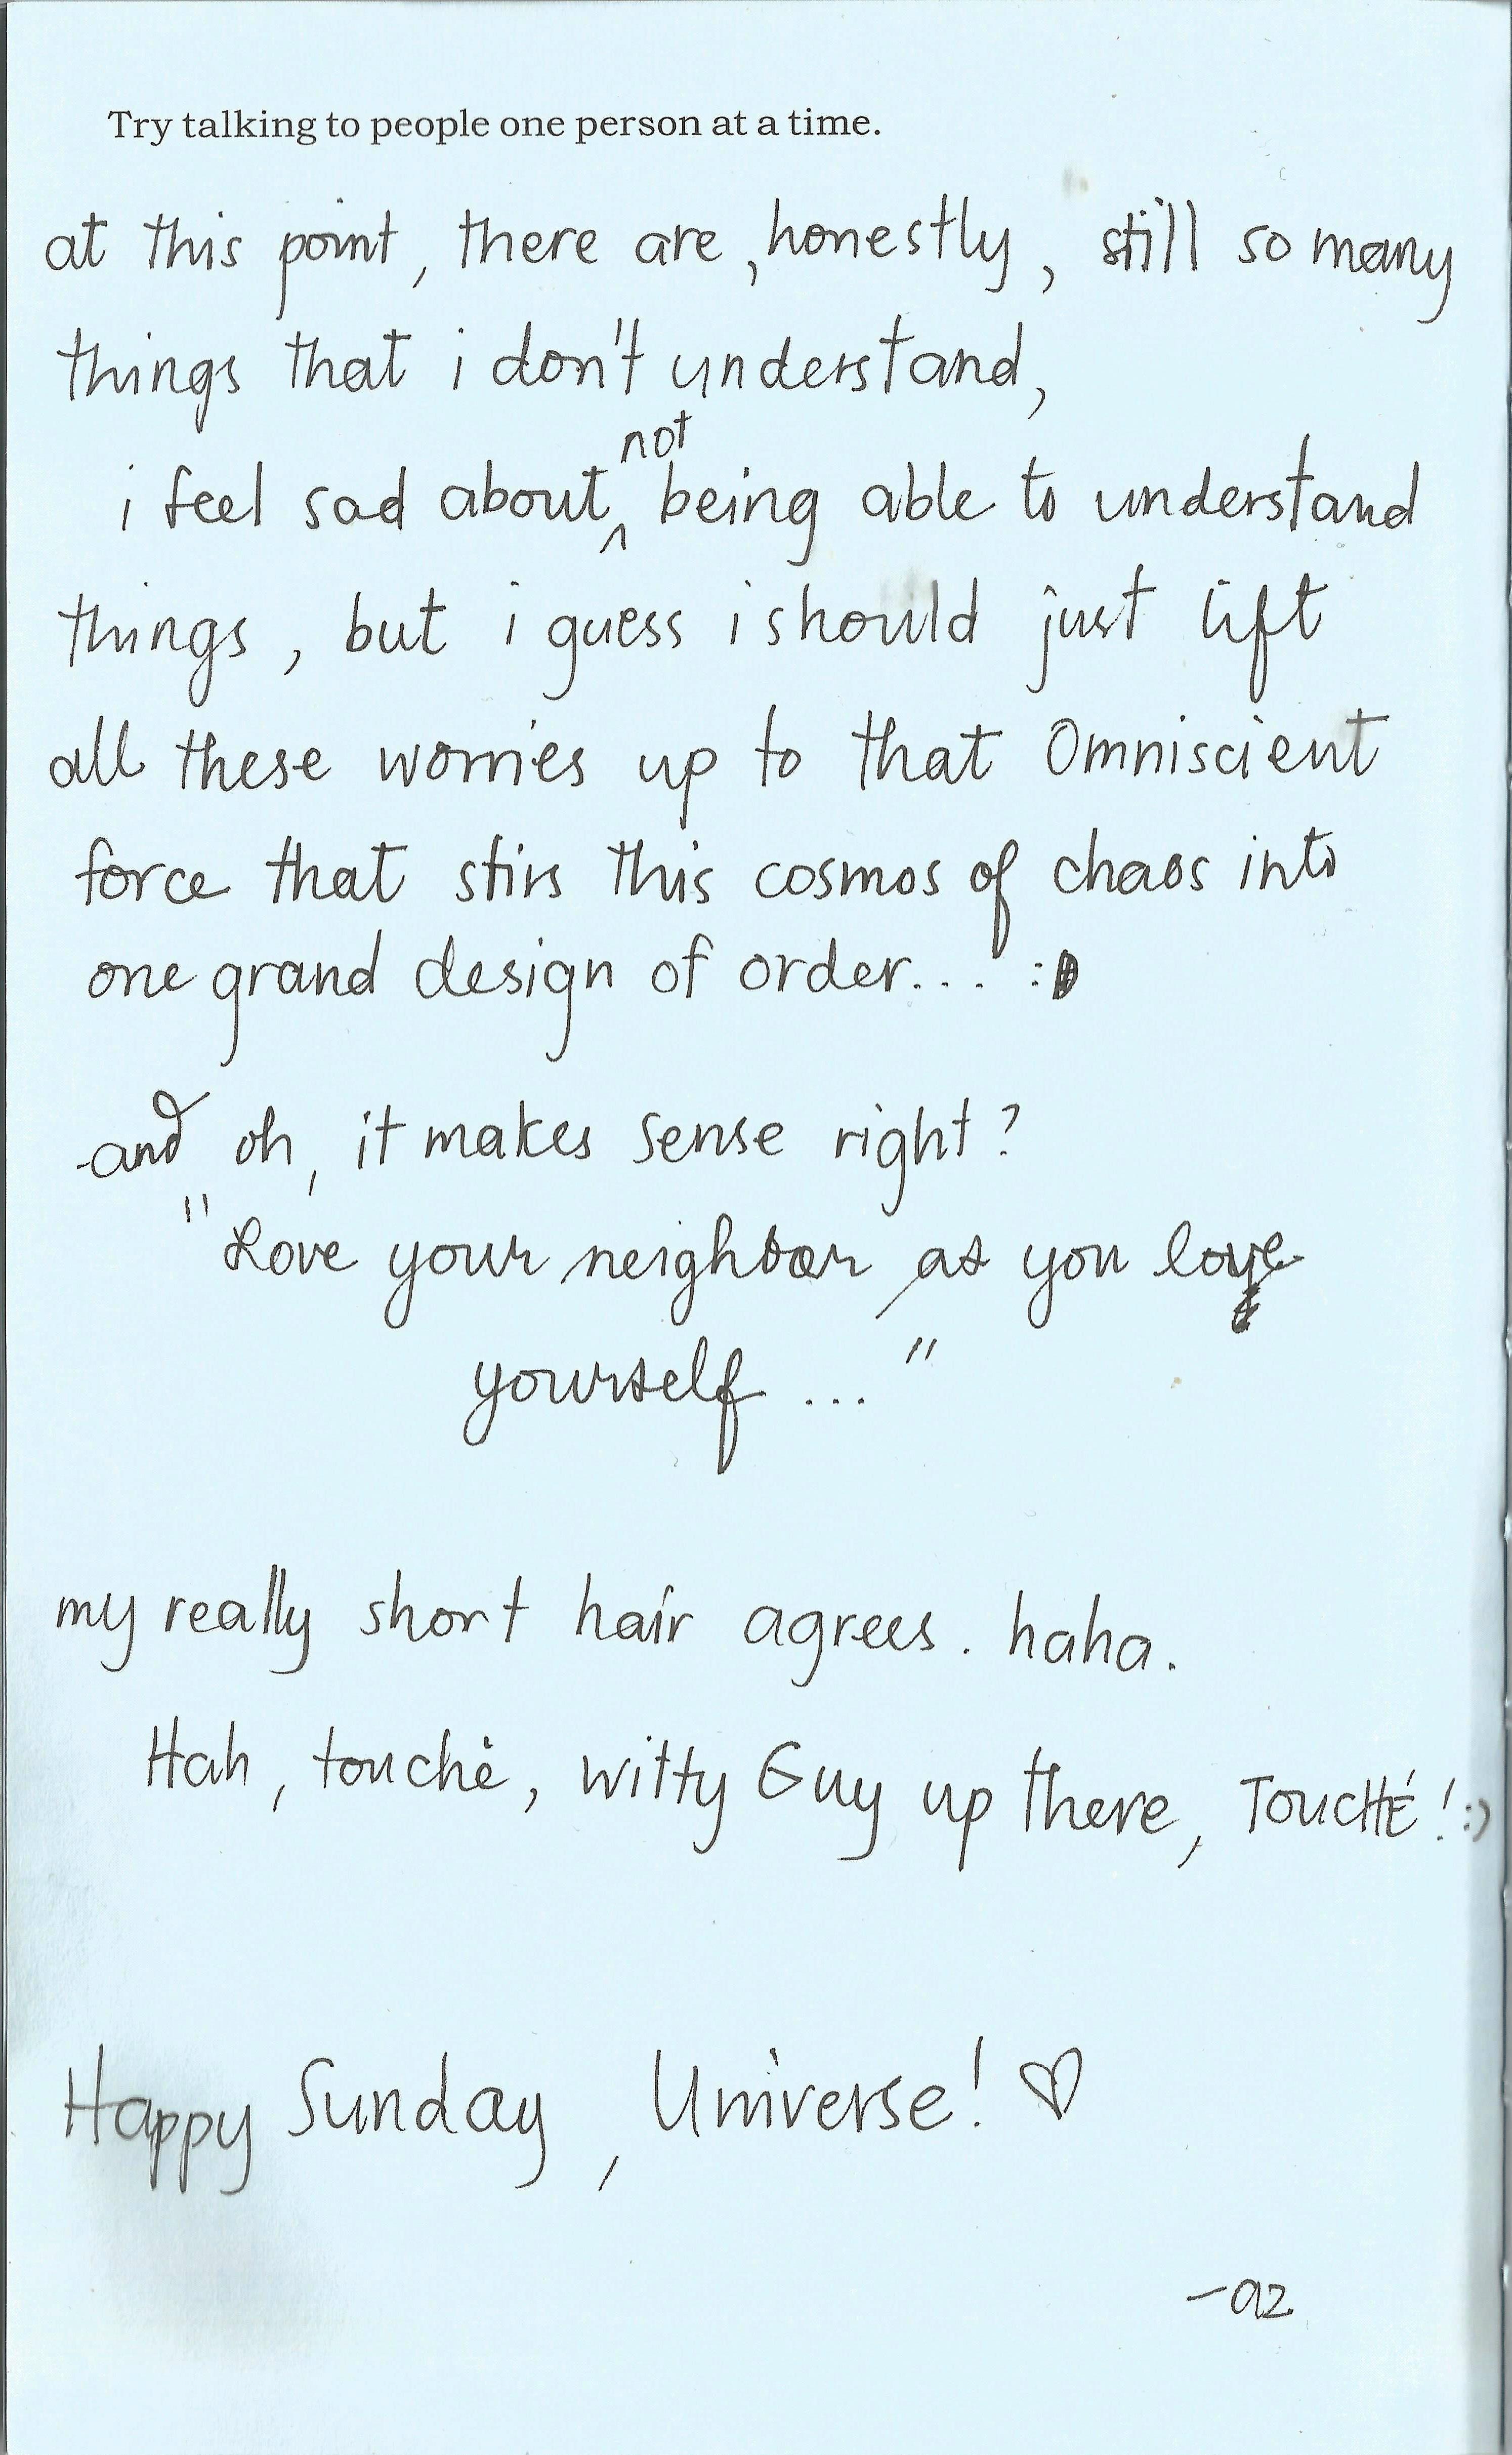 Try talking to people one person at a time.
at this point, there are, honestly, still so many
things that i don't understand,
i feel sad about not being able to understand
things, but i guess i should just lift
all these worries up to that Omniscient
force that stirs this cosmos of chaos into
one grand design of order... :D
-and oh, it makes sense right?
"Love your neighbor as you love
yourself ..."
my really short hair agrees. haha.
Hah, touchè, witty Guy up there, TOUCHÉ! :)
Happy Sunday, Universe! ♡
-az